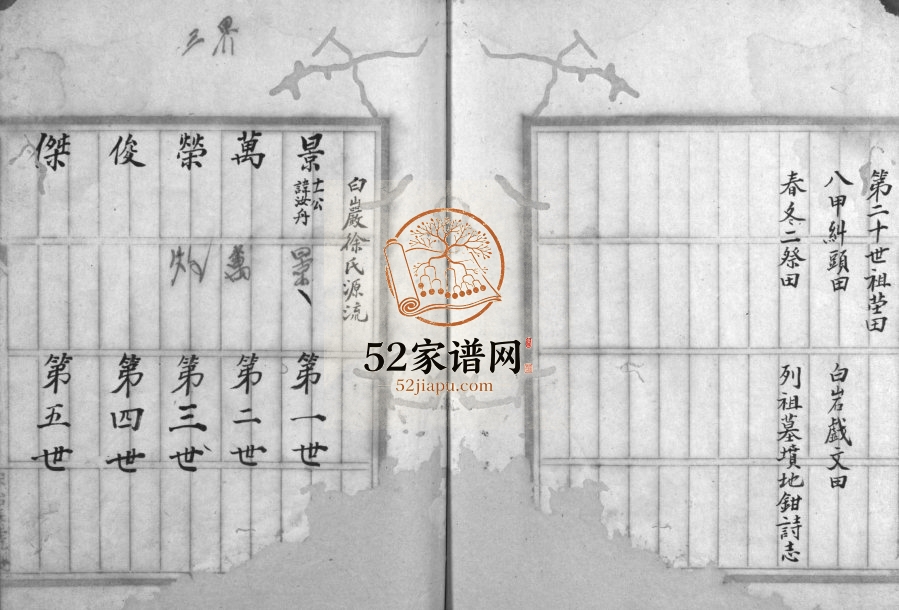 第二十世祖茔田
八甲糾頭田
白岩戲文田
春冬二祭田
列祖墓墳地鉗詩志
三界
白巖徐氏源流
景
士公
諱汝丹
第一世
萬
萬
第二世
榮
第三世
俊
第四世
傑
第五世
52家谱网
52jiapu.com